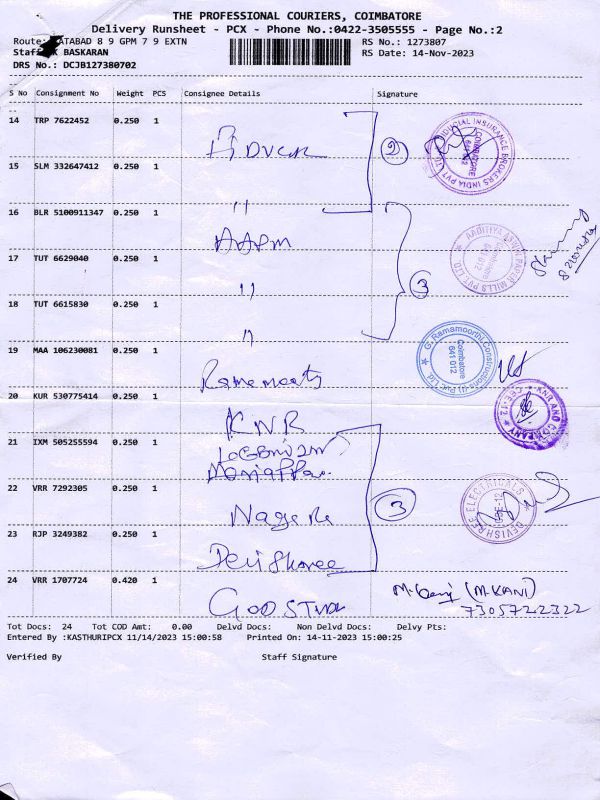 THE PROFESSIONAL COURIERS, COIMBATORE
Delivery Runsheet - PCX - Phone No.:0422-3505555 - Page No.:2
Route: ATABAD 8 9 GPM 7 9 EXTN RS No.: 1273807
Staff: BASKARAN RS Date: 14-Nov-2023
DRS No.: DCJB127380702
S No Consignment No Weight PCS Consignee Details Signature
14 TRP 7622452 0.250 1
2
FIDUCIAL INSURANCE BROKERS INDIA PVT LTD COIMBATORE
15 SLM 332647412 0.250 1
"
16 BLR 5100911347 0.250 1
AAPM
AADITIYA ASWIN PAPER MILLS PVT LTD. Coimbatore 641 012
17 TUT 6629040 0.250 1
"
3
18 TUT 6615830 0.250 1
"
19 MAA 106230081 0.250 1
G. Ramamoorthi Constructions (I) Pvt. Ltd. Coimbatore 641 012
20 KUR 530775414 0.250 1
KNR
KNR AND COMPANY CBE-12
21 IXM 505255594 0.250 1
22 VRR 7292305 0.250 1
3
DEVISHREE ELECTRICALS CBE-12
23 RJP 3249382 0.250 1
24 VRR 1707724 0.420 1
(M.KANI)
7305722322
Tot Docs: 24 Tot COD Amt: 0.00 Delvd Docs: Non Delvd Docs: Delvy Pts:
Entered By :KASTHURIPCX 11/14/2023 15:00:58 Printed On: 14-11-2023 15:00:25
Verified By Staff Signature